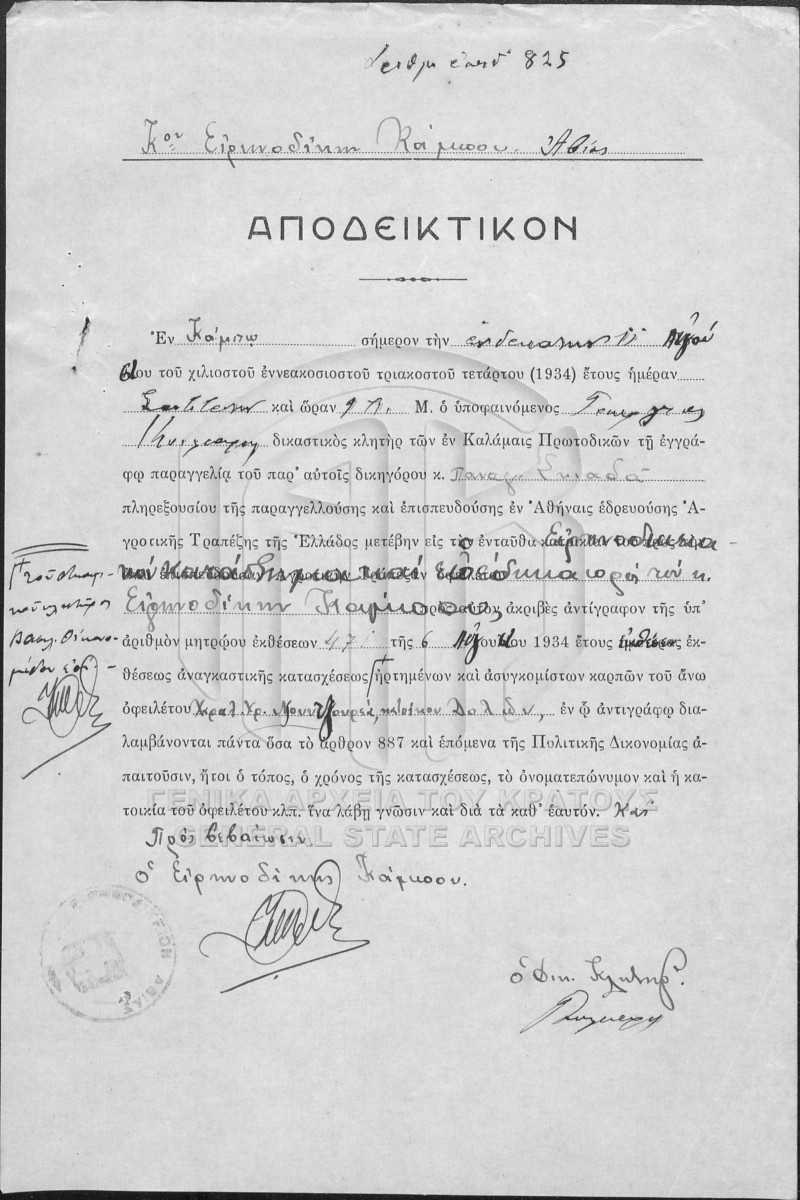 825
Κον Εἰρηνοδίκην Κάμπου Ἀβίας
ΑΠΟΔΕΙΚΤΙΚΟΝ
Ἐν Κάμπῳ σήμερον τὴν ἑνδεκάτην 11 Αὐγού
στου τοῦ χιλιοστοῦ ἐννεακοσιοστοῦ τριακοστοῦ τετάρτου (1934) ἔτους ἡμέραν
Σάββατον καὶ ὥραν 9 π. Μ. ὁ ὑποφαινόμενος Γεώργιος
δικαστικὸς κλητὴρ τῶν ἐν Καλάμαις Πρωτοδικῶν τῇ ἐγγρά-
φῳ παραγγελίᾳ τοῦ παρ' αὐτοῖς δικηγόρου κ. Παναγ. Σκιαδᾶ
πληρεξουσίου τῆς παραγγελλούσης καὶ ἐπισπευδούσης ἐν Ἀθήναις ἑδρευούσης Ἀ-
γροτικῆς Τραπέζης τῆς Ἑλλάδος μετέβην εἰς τὸ ἐνταῦθα Εἰρηνοδικια-
κὸν κατάστημα καὶ ἐπέδωκα πρὸς τὸν κ.
Εἰρηνοδίκην Κάμπου ἀκριβὲς ἀντίγραφον τῆς ὑπ'
ἀριθμὸν μητρῴου ἐκθέσεων 471 τῆς 6 Αὐγούστου 1934 ἔτους ἐκ-
θέσεως ἀναγκαστικῆς κατασχέσεως ἠρτημένων καὶ ἀσυγκομίστων καρπῶν τοῦ ἄνω
ὀφειλέτου κατοίκου Δολῶν, ἐν ᾧ ἀντιγράφῳ δια-
λαμβάνονται πάντα ὅσα τὸ ἄρθρον 887 καὶ ἑπόμενα τῆς Πολιτικῆς Δικονομίας ἀ-
παιτοῦσιν, ἤτοι ὁ τόπος, ὁ χρόνος τῆς κατασχέσεως, τὸ ὀνοματεπώνυμον καὶ ἡ κα-
τοικία τοῦ ὀφειλέτου κλπ. ἵνα λάβῃ γνῶσιν καὶ διὰ τὰ καθ' ἑαυτόν. Καὶ
Πρὸς βεβαίωσιν
ὁ Εἰρηνοδίκης Κάμπου.
ὁ Δικ. Κλητήρ
τοῦ δικασ-
τικοῦ κλητῆρος
Βασιλ. Οἰκονο-
ΓΕΝΙΚΑ ΑΡΧΕΙΑ ΤΟΥ ΚΡΑΤΟΥΣ
GENERAL STATE ARCHIVES